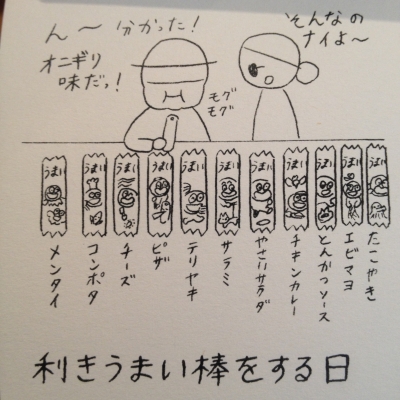 ん〜 分かった!
オニギリ
味だっ!
そんなの
ナイよ〜
モグ
モグ
うまい
うまい
うまい
うまい
うまい
うまい
うまい
うまい
うまい
うまい
うまい
メンタイ
コンポタ
チーズ
ピザ
テリヤキ
サラミ
やさいサラダ
チキンカレー
とんかつソース
エビマヨ
たこやき
利きうまい棒をする日